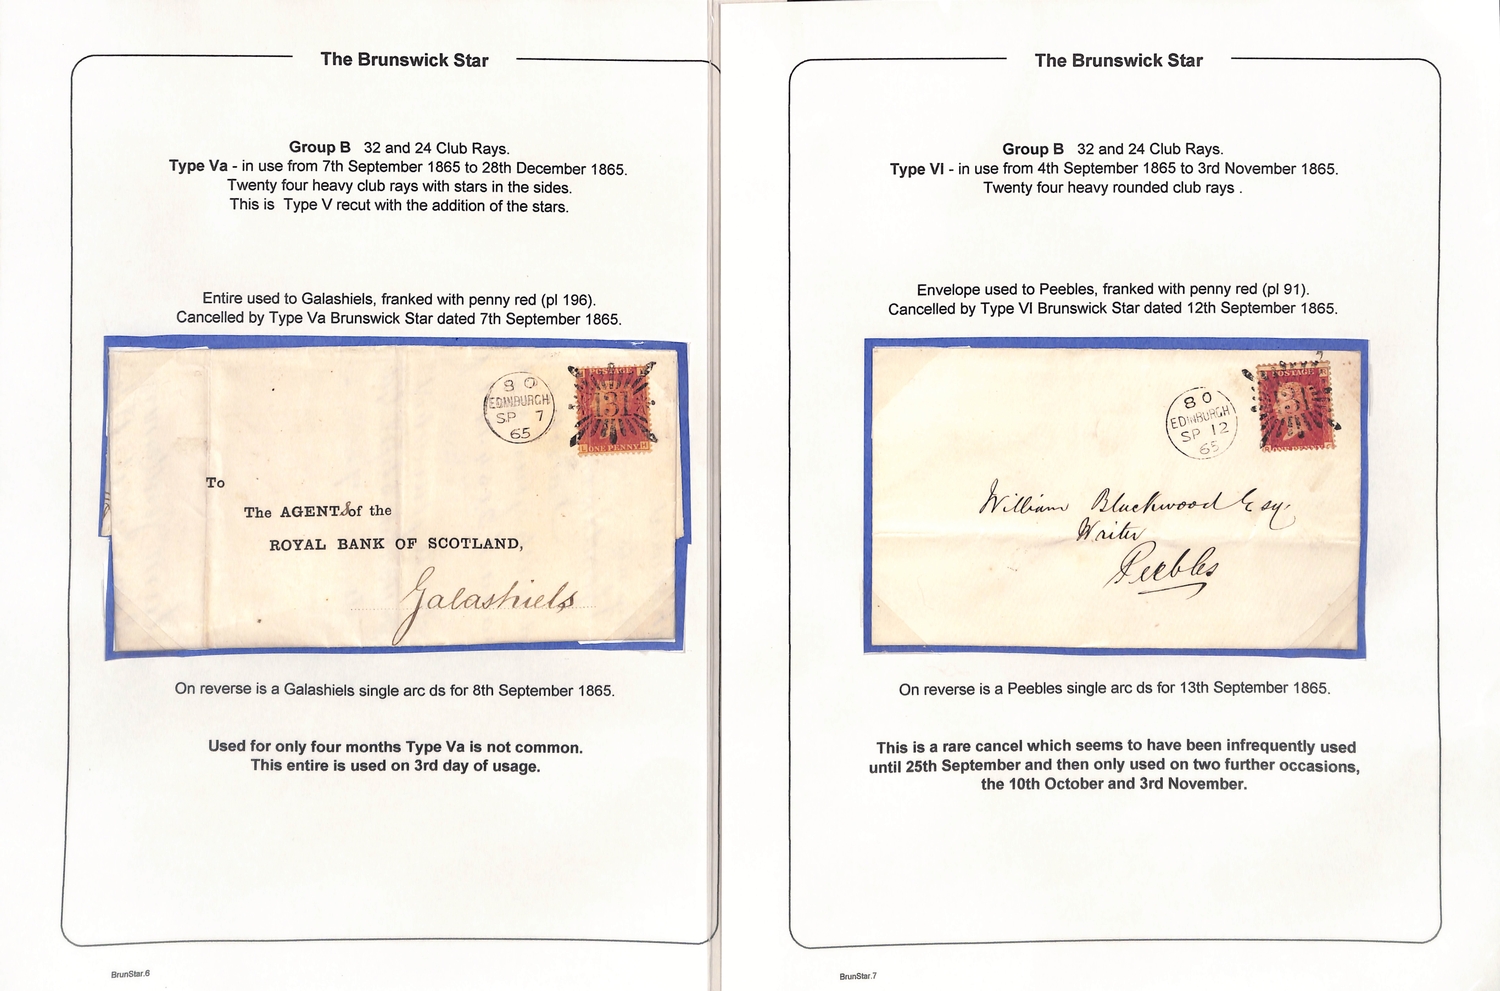 The Brunswick Star
Group B 32 and 24 Club Rays.
Type Va - in use from 7th September 1865 to 28th December 1865.
Twenty four heavy club rays with stars in the sides.
This is Type V recut with the addition of the stars.
Entire used to Galashiels, franked with penny red (pl 196).
Cancelled by Type Va Brunswick Star dated 7th September 1865.
80
EDINBURGH
SP 7
65
POSTAGE
131
ONE PENNY
To
The AGENTS of the
ROYAL BANK OF SCOTLAND,
Galashiels
On reverse is a Galashiels single arc ds for 8th September 1865.
Used for only four months Type Va is not common.
This entire is used on 3rd day of usage.
BrunStar.6
The Brunswick Star
Group B 32 and 24 Club Rays.
Type VI - in use from 4th September 1865 to 3rd November 1865.
Twenty four heavy rounded club rays .
Envelope used to Peebles, franked with penny red (pl 91).
Cancelled by Type VI Brunswick Star dated 12th September 1865.
80
EDINBURGH
SP 12
65
POSTAGE
131
William Blackwood Esq.
Writer
Peebles
On reverse is a Peebles single arc ds for 13th September 1865.
This is a rare cancel which seems to have been infrequently used
until 25th September and then only used on two further occasions,
the 10th October and 3rd November.
BrunStar.7